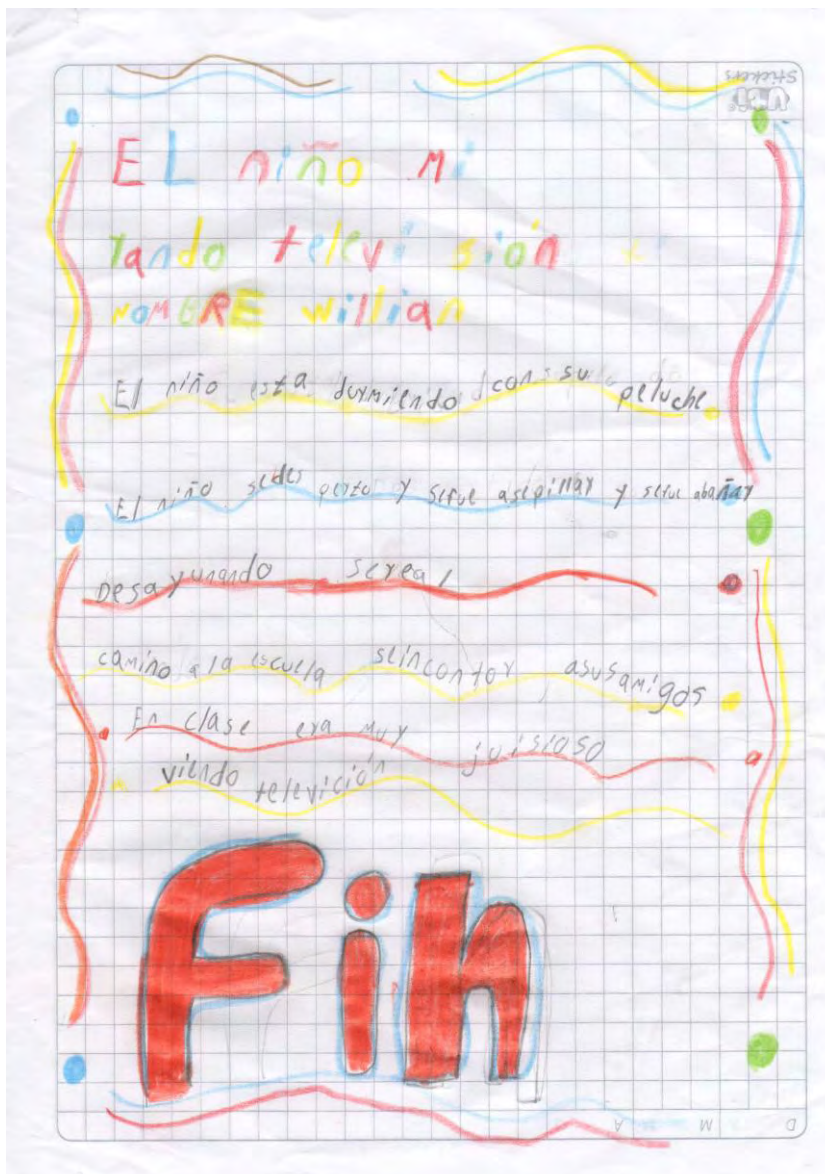 EL niño mi
rando televi sión
NOMBRE willian
El niño esta durmiendo con su peluche
El niño sedes perto y sefue asepillar y sefue abañar
Desayunando sereal
camino a la escuela seincontor asusamigos
En clase era muy juisioso
viendo televición
Fin
Stickers
D M A